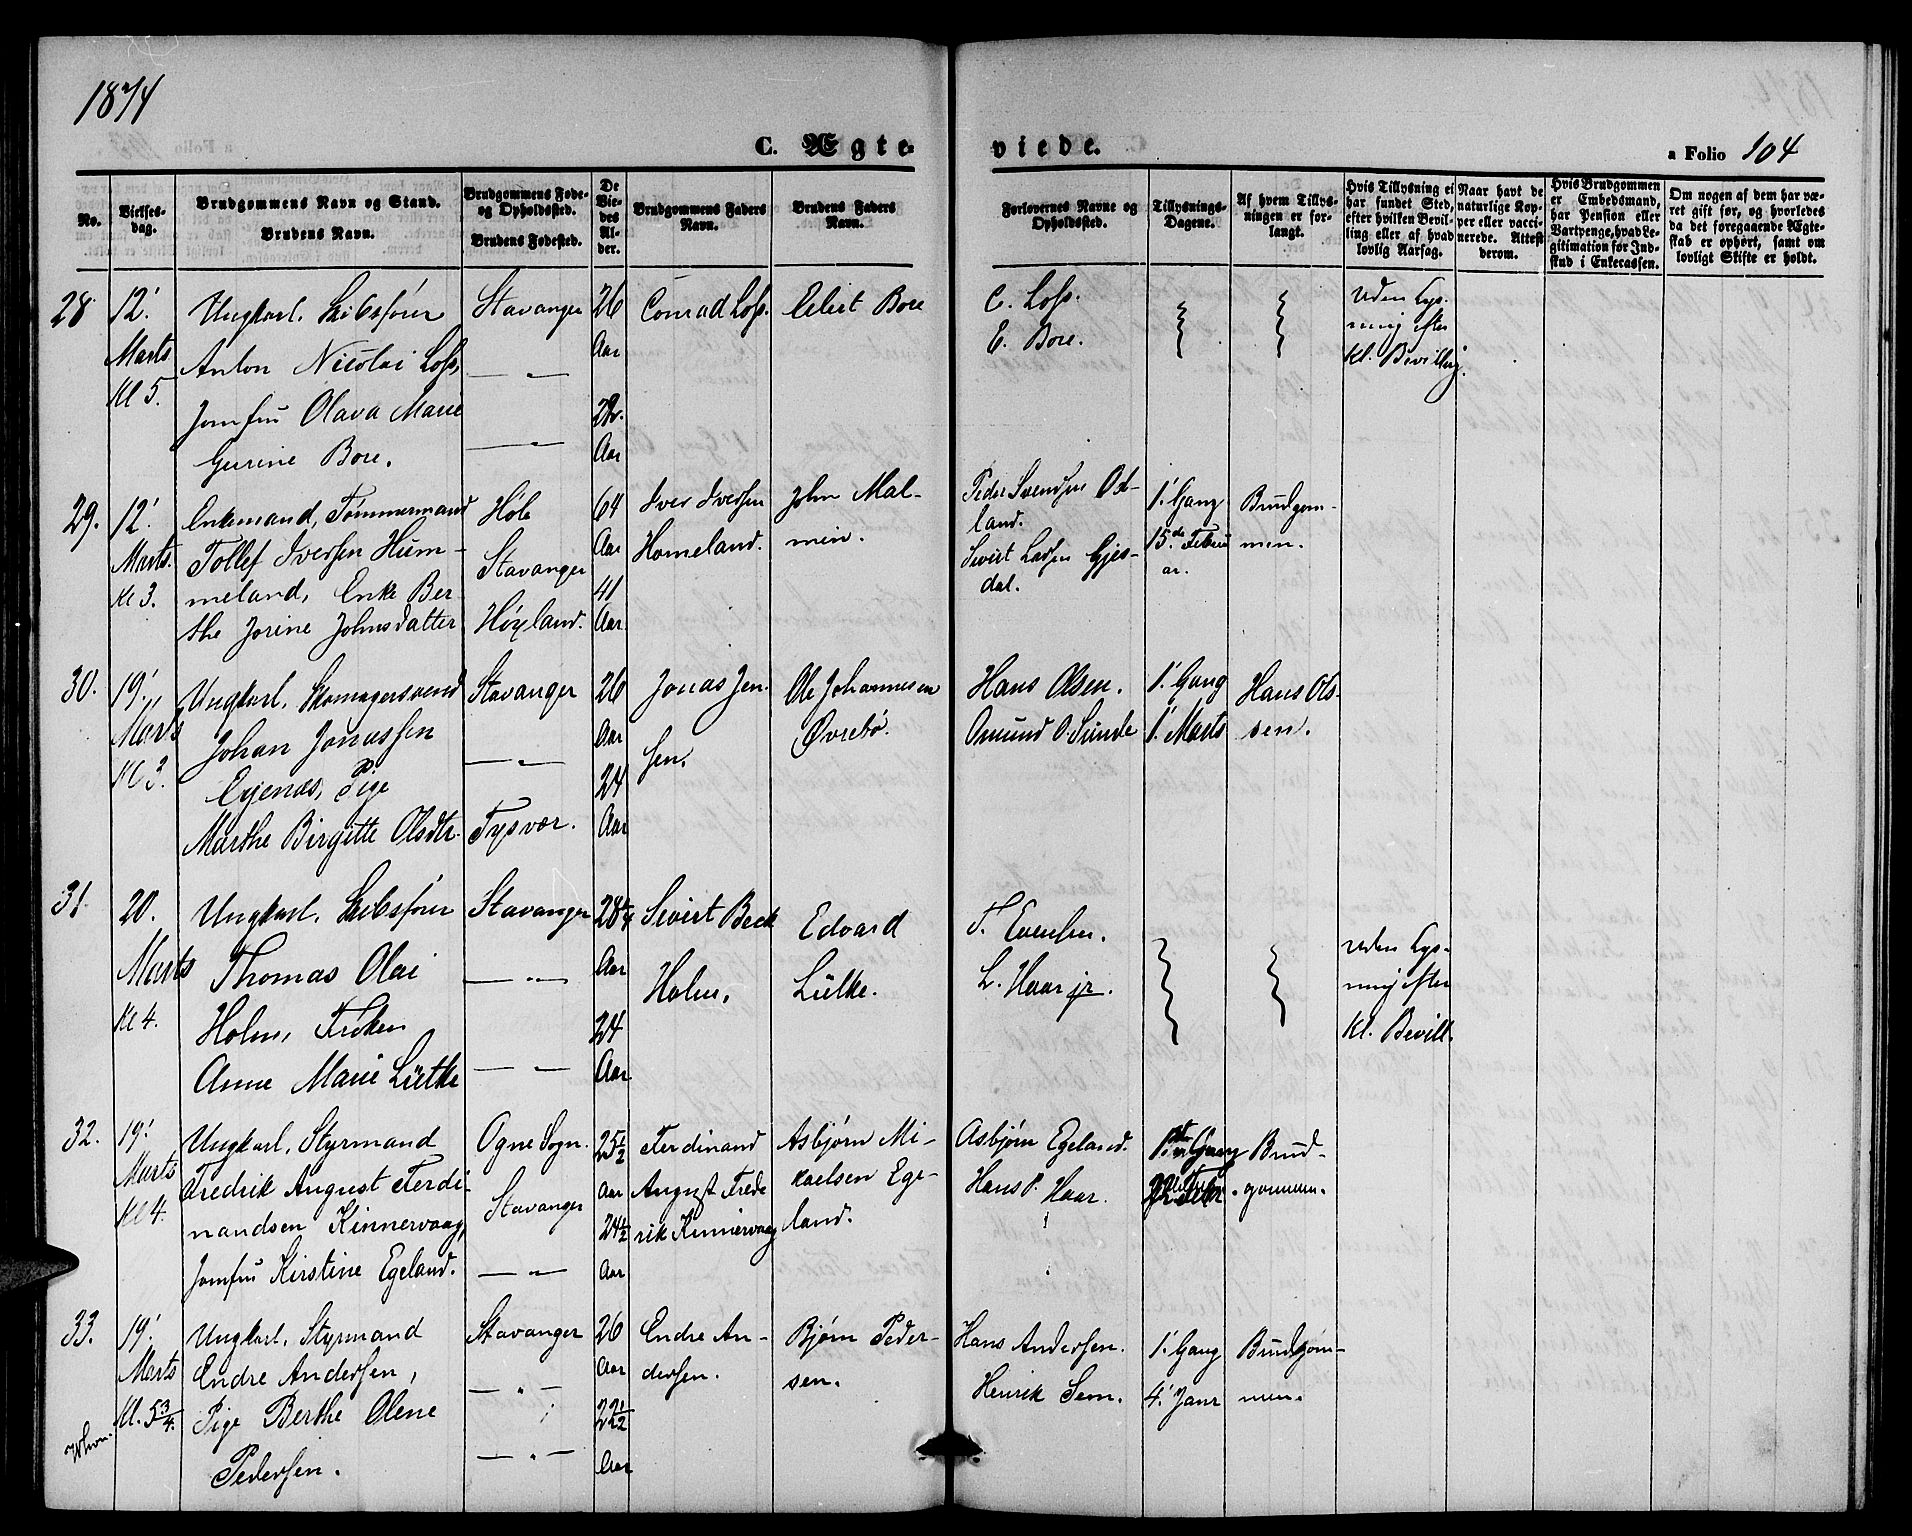 1874
C. Ægte-
viede.
a Folio 104
No.
Vielses-
dag.
Brudgommens Navn og Stand.
Brudens Navn.
Brudgommens Føde-
og Opholdssted.
Brudens Fødested.
De
Vie-
des
Al-
der.
Brudgommens Faders
Navn.
Brudens Faders
Navn.
Forlovernes Navne og
Opholdssted.
Tillysnings-
Dagene.
Af hvem Tillys-
ningen er for-
langt.
Hvis Tillysning ei
har fundet Sted,
efter hvilken Bevil-
ling eller af hvad
lovlig Aarsag.
Naar havt de
naturlige Kop-
per eller vacci-
nerede. Attest
derom.
Hvis Brudgommen
er Embedsmand,
har Pension eller
Vartpenge, hvad Le-
gitimation for Ind-
skud i Enkecassen.
Om nogen af dem har væ-
ret gift før, og hvorledes
da det foregaaende Ægte-
skab er ophørt, samt om
lovligt Skifte er holdt.
28.
12'
Marts
Kl 5.
Ungkarl. Skibsfører
Anton Nicolai Loss,
Jomfru Olava Marie
Gurine Bore.
Stavanger
— " —
— " —
26
Aar
Aar
Conrad Loss.
Eilert Bore
C. Loss.
E. Bore.
Uden Lys-
ning efter
Kl. Bevilling.
29.
12'
Marts.
Kl 3.
Enkemand, Tømmermand
Tollef Iversen Hum-
meland, Enke Ber-
the Jorine Johnsdatter
Høle
Stavanger
Høyland.
64
Aar
41
Aar
Iver Iversen
Homeland.
John Mal-
min.
Peder Svendsen Ost-
land.
Sivert Larsen Gjes-
dal.
1' Gang
15de Febru
ar.
Brudgom-
men.
30.
19'
Marts
Kl 3.
Ungkarl. Skomagersvend
Johan Jonassen
Eyenæs, Pige
Marthe Birgitte Olsdtr.
Stavanger
— " —
Tysvær.
26
Aar
24
Aar
Jonas Jen-
sen.
Ole Johannesen
Øvrebø.
Hans Olsen.
Osmund O. Sunde
1' Gang
1' Marts
Hans Ols-
sen.
31.
20.
Marts
Kl 4.
Ungkarl. Skibsfører
Thomas Olai
Holm, Frøken
Anne Marie Lütke
Stavanger
— " —
— " —
28 1/4
Aar
24
Aar
Sivert Beck
Holm,
Edvard
Lütke.
T. Evensen.
L. Haar jr.
Uden Lys-
ning efter
Kl. Bevill.
32.
19'
Marts
Kl 4.
Ungkarl. Styrmand
Fredrik August Ferdi-
nandsen Kinnervaag,
Jomfru Kirstine Egeland.
Ogne Sogn.
Stavanger
— " —
25 1/2
Aar
24 1/2
Aar
Ferdinand
August Frede
rik Kinnervaag
Asbjørn Mi-
kaelsen Ege-
land.
Asbjørn Egeland.
Hans P. Haar.
1ste Gang
22 Febr.
Brud-
gommen.
33.
19'
Marts
Kl. 5 3/4.
Ungkarl. Styrmand
Endre Andersen,
Pige Berthe Olene
Pedersen.
Stavanger
— " —
— " —
26
Aar
22 1/2
Aar
Endre An-
dersen.
Bjørn Peder-
sen.
Hans Andersen.
Henrik Sem.
1' Gang
4' Janr
Brudgom-
men.